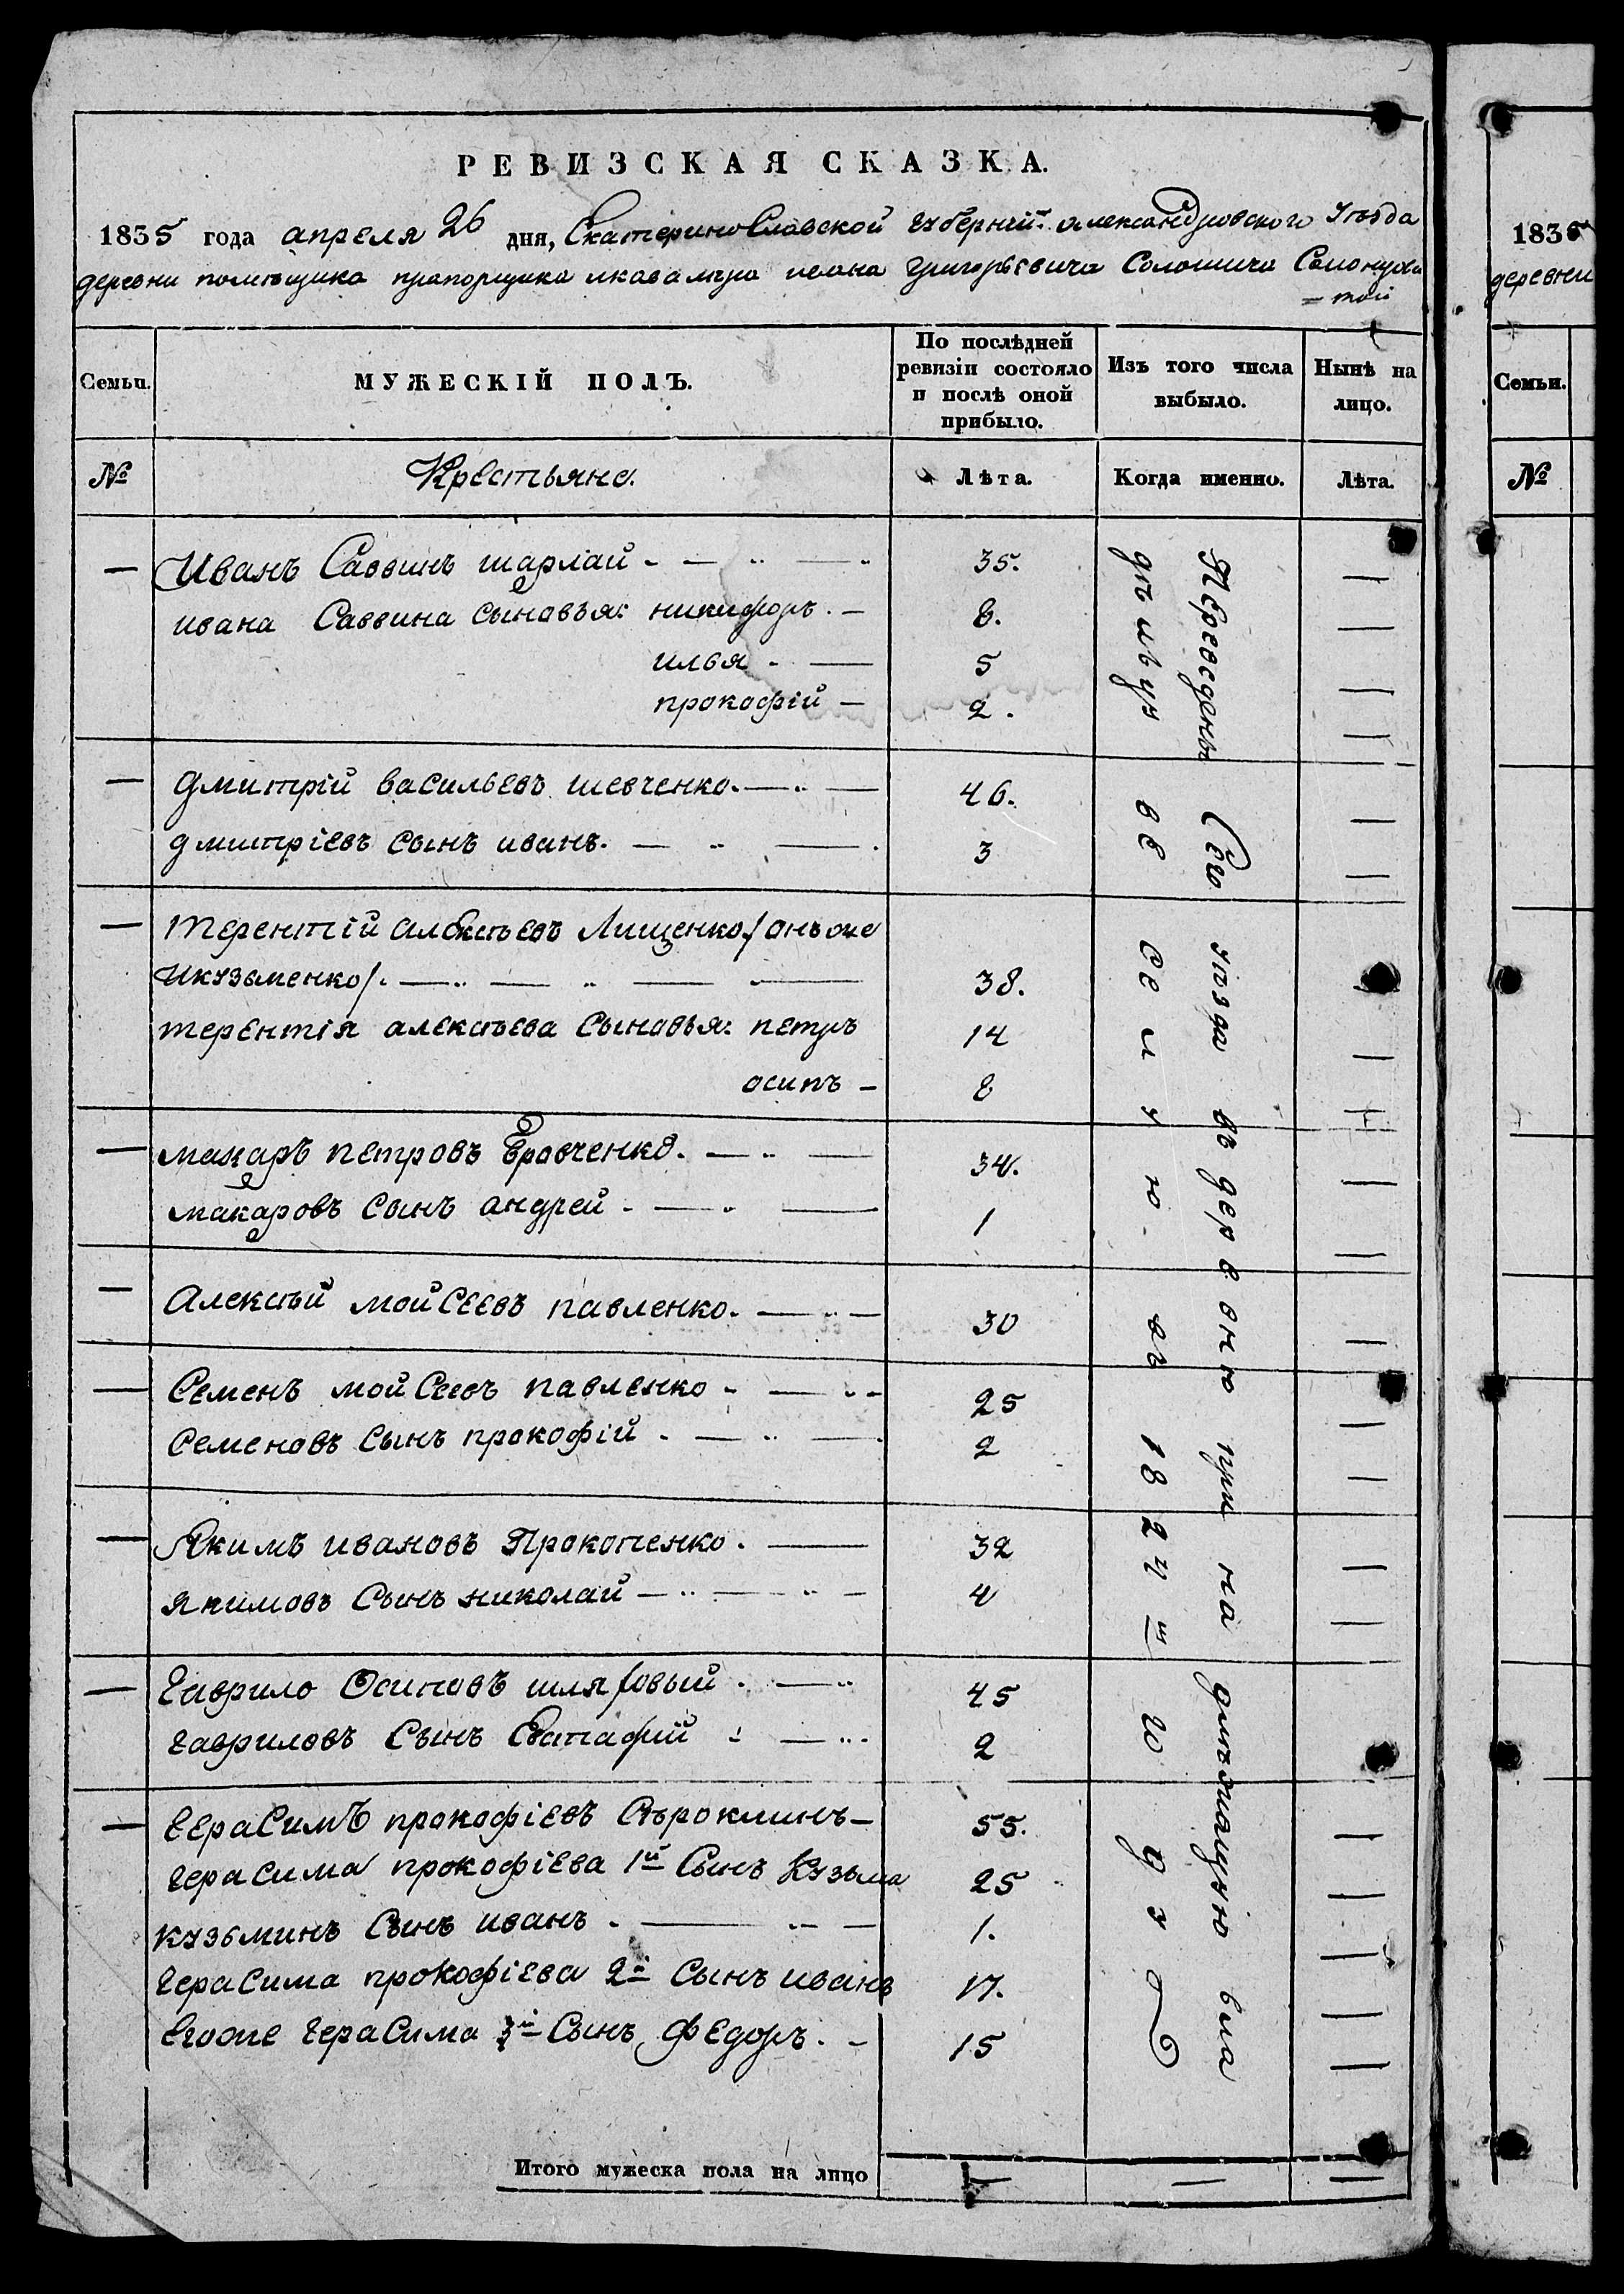 РЕВИЗСКАЯ СКАЗКА.
1835 года апреля 26 дня, Екатеринославской губерній. александровского уѣзда
деревни помѣщика прапорщика икавалера ивана григорьевича
= той
Семьи.
МУЖЕСКІЙ ПОЛЪ.
По послѣдней ревизіи состояло и послѣ оной прибыло.
Изъ того числа выбыло.
Нынѣ на лицо.
№
Крестьяне.
Лѣта.
Когда именно.
Лѣта.
— Иванъ Саввинъ шарлай - — 35. —
ивана Саввина сыновъя: никифоръ. — 8. —
илья - — 5 —
прокофій — 2. —
— дмитрій васильевъ шевченко. — 46. —
дмитріевъ сынъ иванъ. — 3 —
— терентій алексѣевъ Лищенко /онъ же
Икузьменко/. — 38. —
терентія алексѣева сыновья: петръ 14 —
осипъ — 8 —
— макаръ петровъ Еровченко. — 34. —
макаровъ сынъ андрей - — 1 —
— Алексѣй мойсеевъ павленко. — 30 —
— Семенъ мойсеевъ павленко - — 25 —
Семеновъ сынъ прокофій - — 2 —
— Якимъ ивановъ Прокопенко. — 32 —
якимовъ сынъ николай — 4 —
— гаврило Осиповъ шляховый. — 45
гавриловъ сынъ Евстафий — 2
— герасимъ прокофіевъ — 55. —
герасима прокофіева 1й сынъ Кузьма 25 —
кузьминъ сынъ иванъ. — 1. —
герасима прокофіева 2й сынъ иванъ 17. —
егоже герасима 3й сынъ федоръ. - 15 —
Переведены Сего уѣзда въ деревню при на
вь 182 м году
Итого мужеска пола на лицо
1835
деревни
Семьи.
№